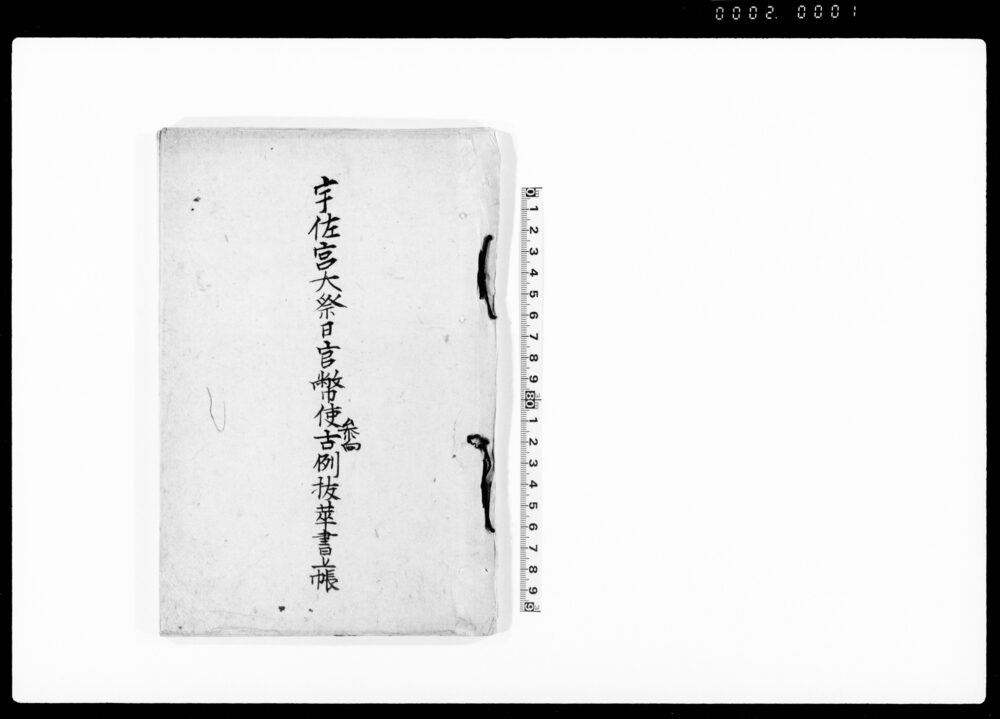 0002. 0001
宇佐宮大祭日官幣使参向古例抜萃書上帳
0 1 2 3 4 5 6 7 8 9 10 1 2 3 4 5 6 7 8 9